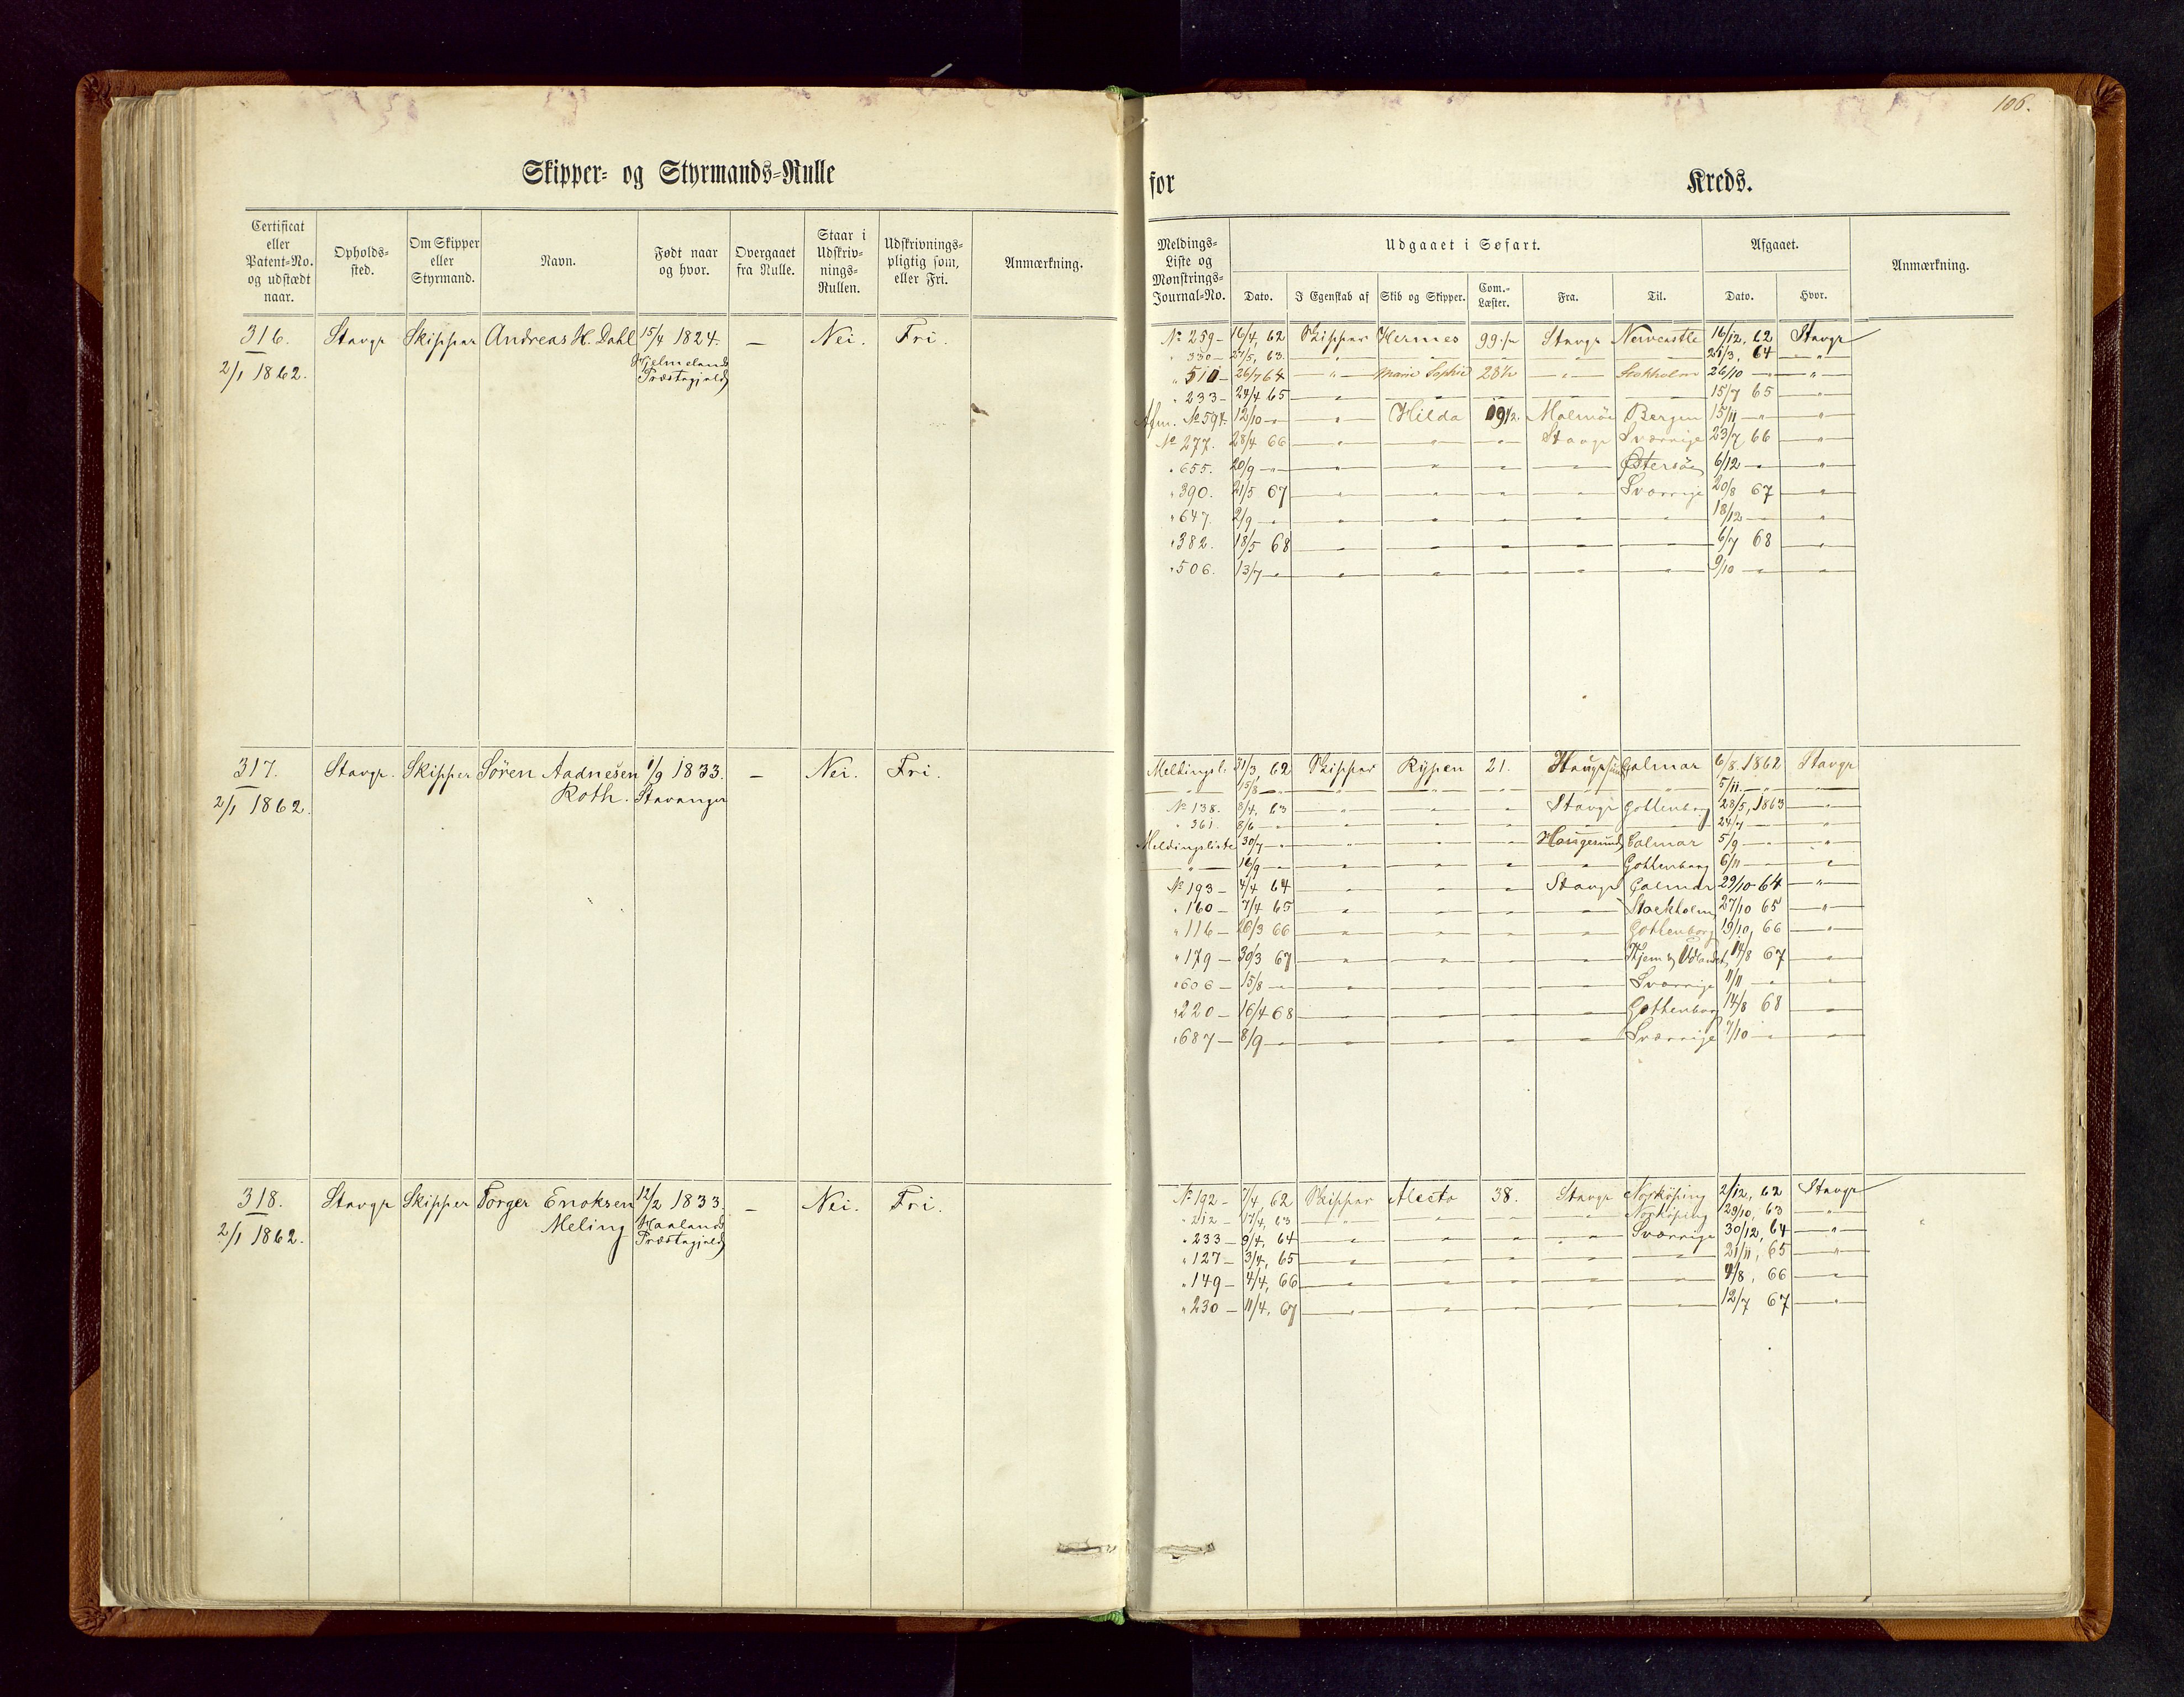 106.
Skipper- og Styrmands-Rulle
for Kreds.
Certificat eller Patent-No. og udstædt naar.
Opholds-sted.
Om Skipper eller Styrmand.
Navn.
Født naar og hvor.
Overgaaet fra Rulle.
Staar i Udskriv-nings-Rullen.
Udskrivnings-pligtig som, eller Fri.
Anmærkning.
Meldings-Liste og Mønstrings-Journal-No.
Udgaaet i Søfart.
Afgaaet.
Anmærkning.
Dato. I Egenskab af Skib og Skipper. Com.-Læster. Fra. Til. Dato. Hvor.
316. Stavgr Skipper Andreas H. Dahl 15/4 1824. — Nei. Fri.
2/1 1862. Hjelmelands Præstegjeld
No 259 — 16/4, 62 Skipper Hermes 99 Stavgr Newcastle 16/12, 62 Stavgr
" 330 — 27/5, 63. — " — — — — 21/3, 64 — " —
" 510 — 26/7 64 — " — Marie Sophie 28½ — " — Stokholm 26/10 — " — "
" 233 — 24/4 65 — " — — — — — 15/7 65 — "
Afm. No 591. 12/10 — " — " — Hilda 19½. Malmöe Bergen 15/11 — " — "
No 277. 28/4 66 — " — " — " — Stavgr Sverrige 23/7, 66 — "
" 655. 20/9 — " — " — " — " — " — Østersöen 6/12 — " — "
" 390. 21/5 67 — " — " — " — " — Sverrige 20/8 67 — "
" 647. 2/9 — " — " — " — " — " — " — 18/12 — "
" 382. 18/5 68 — " — " — " — " — " — 6/7 68 — "
" 506. 13/7 — " — " — " — " — " — " — 9/10 — " — "
317. Stavgr. Skipper Sören Aadnesen 1/9 1833. — Nei. Fri.
2/1 1862. Roth. Stavanger
Meldingsl. 31/3, 62 Skipper Rypen 21. Haugesund Calmar 6/8. 1862 Stavgr
— " — 15/8 — " — " — " — " — 5/11. — " —
No 138. 8/4, 63 — " — " — " — Stavgr Gottenborg 28/5, 1863 — "
" 361. 8/6 — " — " — " — " — " — 24/7 — " — "
Meldingsliste 30/7 — " — " — " — " — Haugesund Calmar 5/9 — " — "
— " — 16/9 — " — " — " — " — " — Gottenborg 6/11 — " — "
No 193 — 4/4 64 — " — " — " — Stavgr Calmar 29/10 64 — " —
" 160 — 7/4 65 — " — " — " — " — Stockholm 27/10 65 — " —
" 116 — 26/3 66 — " — " — " — " — Gottenborg 19/10, 66 — " —
" 179 — 30/3 67 — " — " — " — " — Hjem og Udlandet 14/8 67 — "
" 606 — 15/8 — " — " — " — " — " — Sverrige 11/11 — " — "
" 220 — 16/4 68 — " — " — " — " — Gottenborg 14/8 68 — "
" 687 — 8/9 — " — " — " — " — " — Sverrige 7/10 — " — "
318. Stavgr Skipper Torger Enoksen 12/2 1833. — Nei. Fri.
2/1 1862. Meling Haalands Præstegjeld
No 192 — 7/4, 62 Skipper Alecto 38. Stavgr Norköping 2/12, 62 Stavgr
" 212 — 17/4, 63 — " — " — " — " — Norköping 29/10, 63 — "
" 233 — 9/4, 64 — " — " — " — " — Sverrige 30/12, 64 — " —
" 127 — 3/4, 65 — " — " — " — " — " — 21/11, 65 — " —
" 149 — 4/4, 66 — " — " — " — " — " — 4/8, 66 — " —
" 230 — 11/4, 67 — " — " — " — " — " — 12/7 67 — " —